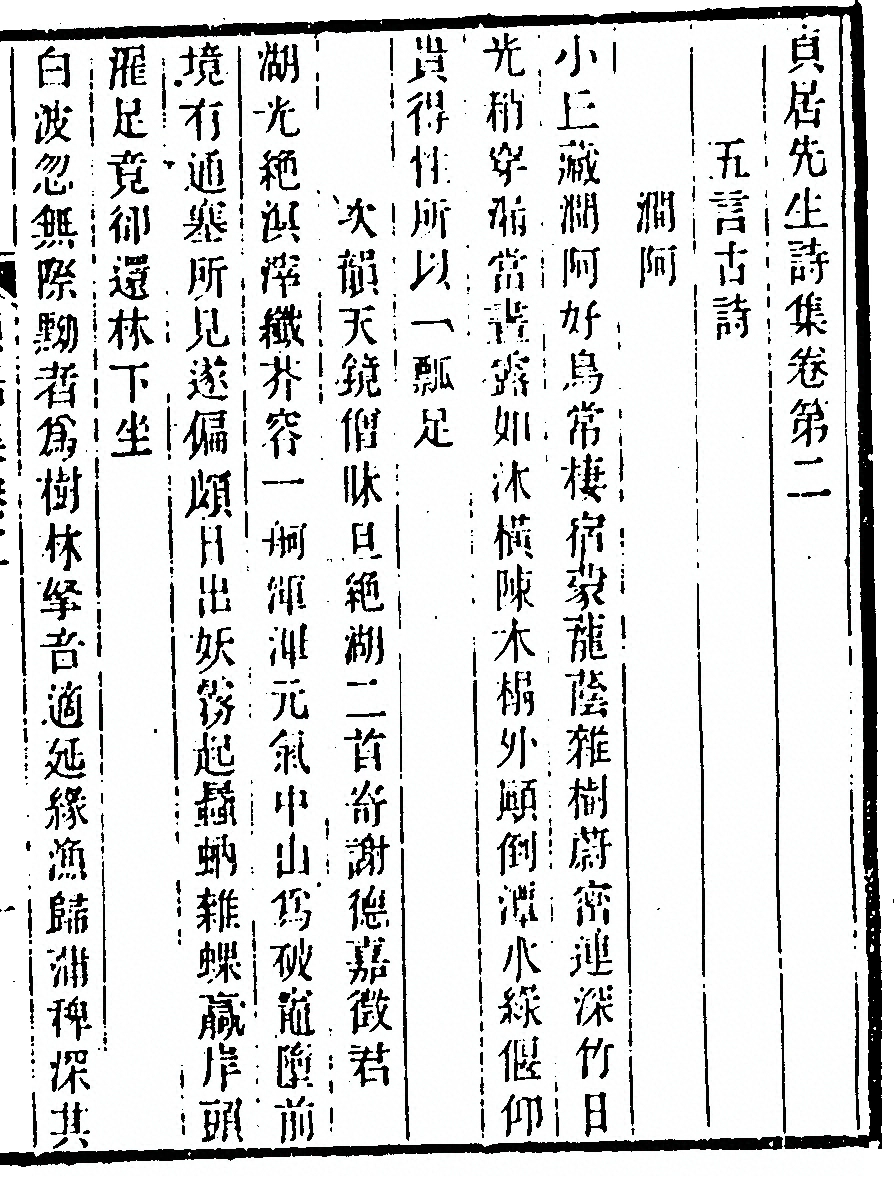 貞居先生詩集卷第二
五言古詩
澗阿
小丘藏澗阿好鳥常棲宿蒙蘢蔭雜樹蔚密連深竹日
光稍穿漏當晝露如沐橫陳木榻外顚倒潭水綠偃仰
貴得性所以一瓢足
次韻天鏡僧昧旦絶湖二首寄謝德嘉徵君
湖光絶溟涬纖芥容一舸渾渾元氣中山爲破竈墮前
境有通塞所見遂偏頗日出妖霧起蟊蚋雜蜾蠃岸頭
濯足竟卻還林下坐
白波忽無際黝者爲樹林拏音適延緣漁歸蒲稗深其